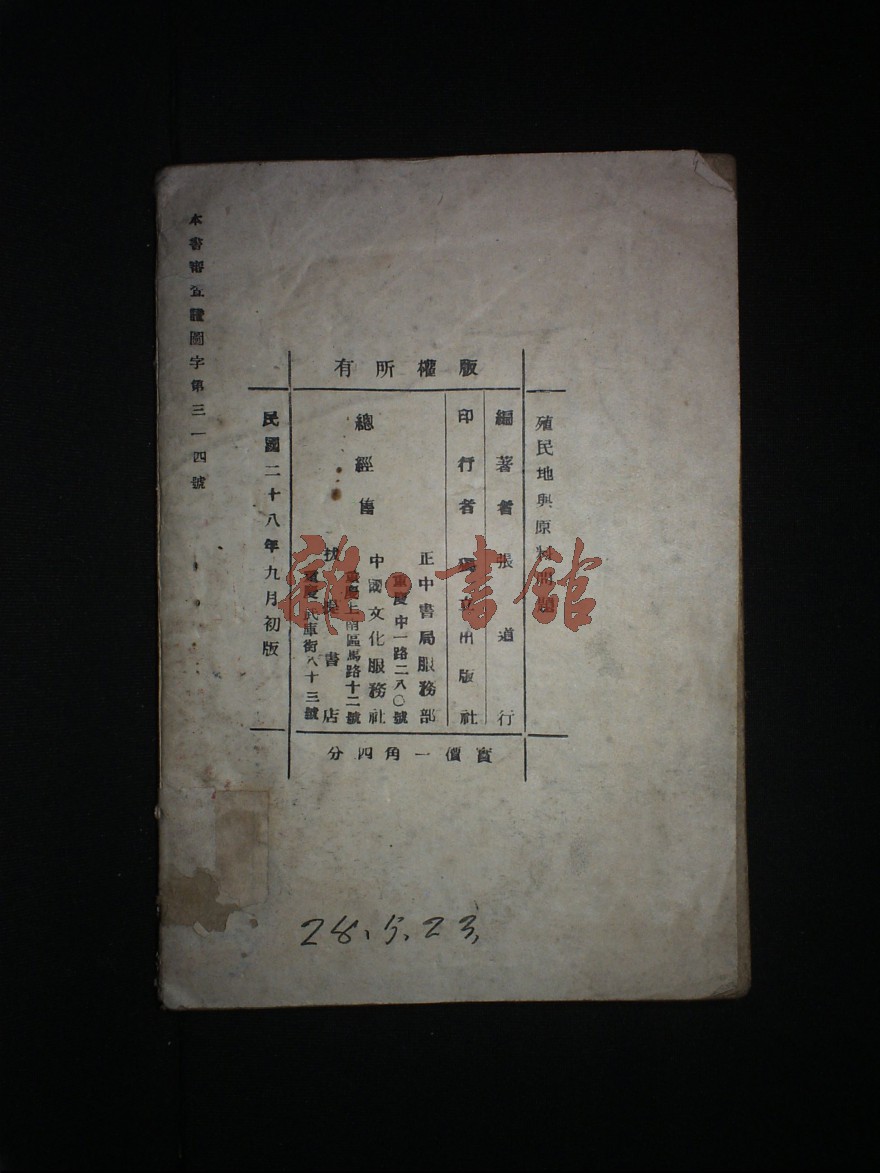 殖民地與原料問題
版權所有
編著者張道行
印行者獨立出版社
總經售
正中書局服務部
重慶中一路二八〇號
中國文化服務社
重慶上南區馬路十二號
拔提書店
重慶武庫街八十三號
實價一角四分
民國二十八年九月初版
本書審查證圖字第三一四號
雜·書館
28.5.23.